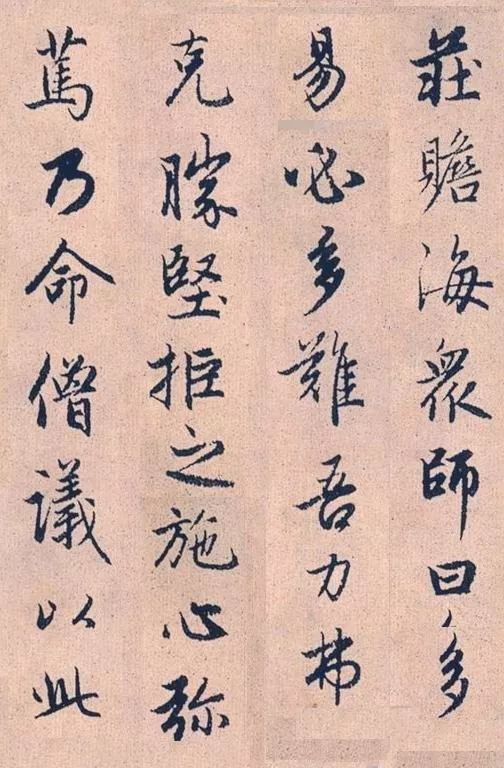 莊贍海衆師曰多
易必多難吾力弗
克勝堅拒之施心弥
篤乃命僧議以此